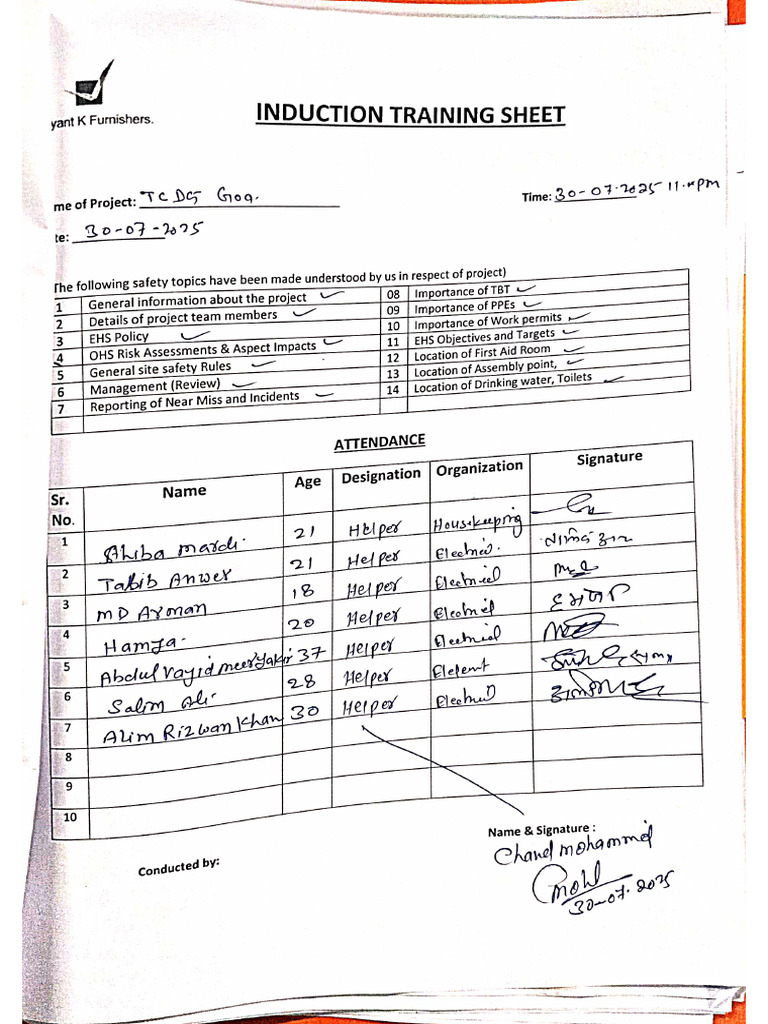 yant K Furnishers.
INDUCTION TRAINING SHEET
me of Project: TCDG Goa.
Time: 30-07-2025 11. pm
te: 30-07-2025
The following safety topics have been made understood by us in respect of project)
1 General information about the project ✓ 08 Importance of TBT ✓
2 Details of project team members ✓ 09 Importance of PPEs ✓
3 EHS Policy ✓ 10 Importance of Work permits ✓
4 OHS Risk Assessments & Aspect Impacts ✓ 11 EHS Objectives and Targets ✓
5 General site safety Rules ✓ 12 Location of First Aid Room ✓
6 Management (Review) ✓ 13 Location of Assembly point, ✓
7 Reporting of Near Miss and Incidents ✓ 14 Location of Drinking water, Toilets ✓
ATTENDANCE
Sr. No. Name Age Designation Organization Signature
1 Shiba mardi. 21 Helper Housekeeping
2 Tabib Anwer 21 Helper Electried.
3 MD Arman 18 Helper Electrieel
4 Hamza. 20 Helper Electriel
5 Abdul Vayid meer 37 Helper Electrical
6 Salim Ali. 28 Helper Elefent
7 Alim Rizwan Khan 30 Helper Electried
8
9
10
Conducted by:
Name & Signature :
Chand mohammed
Mohd
30-07-2025